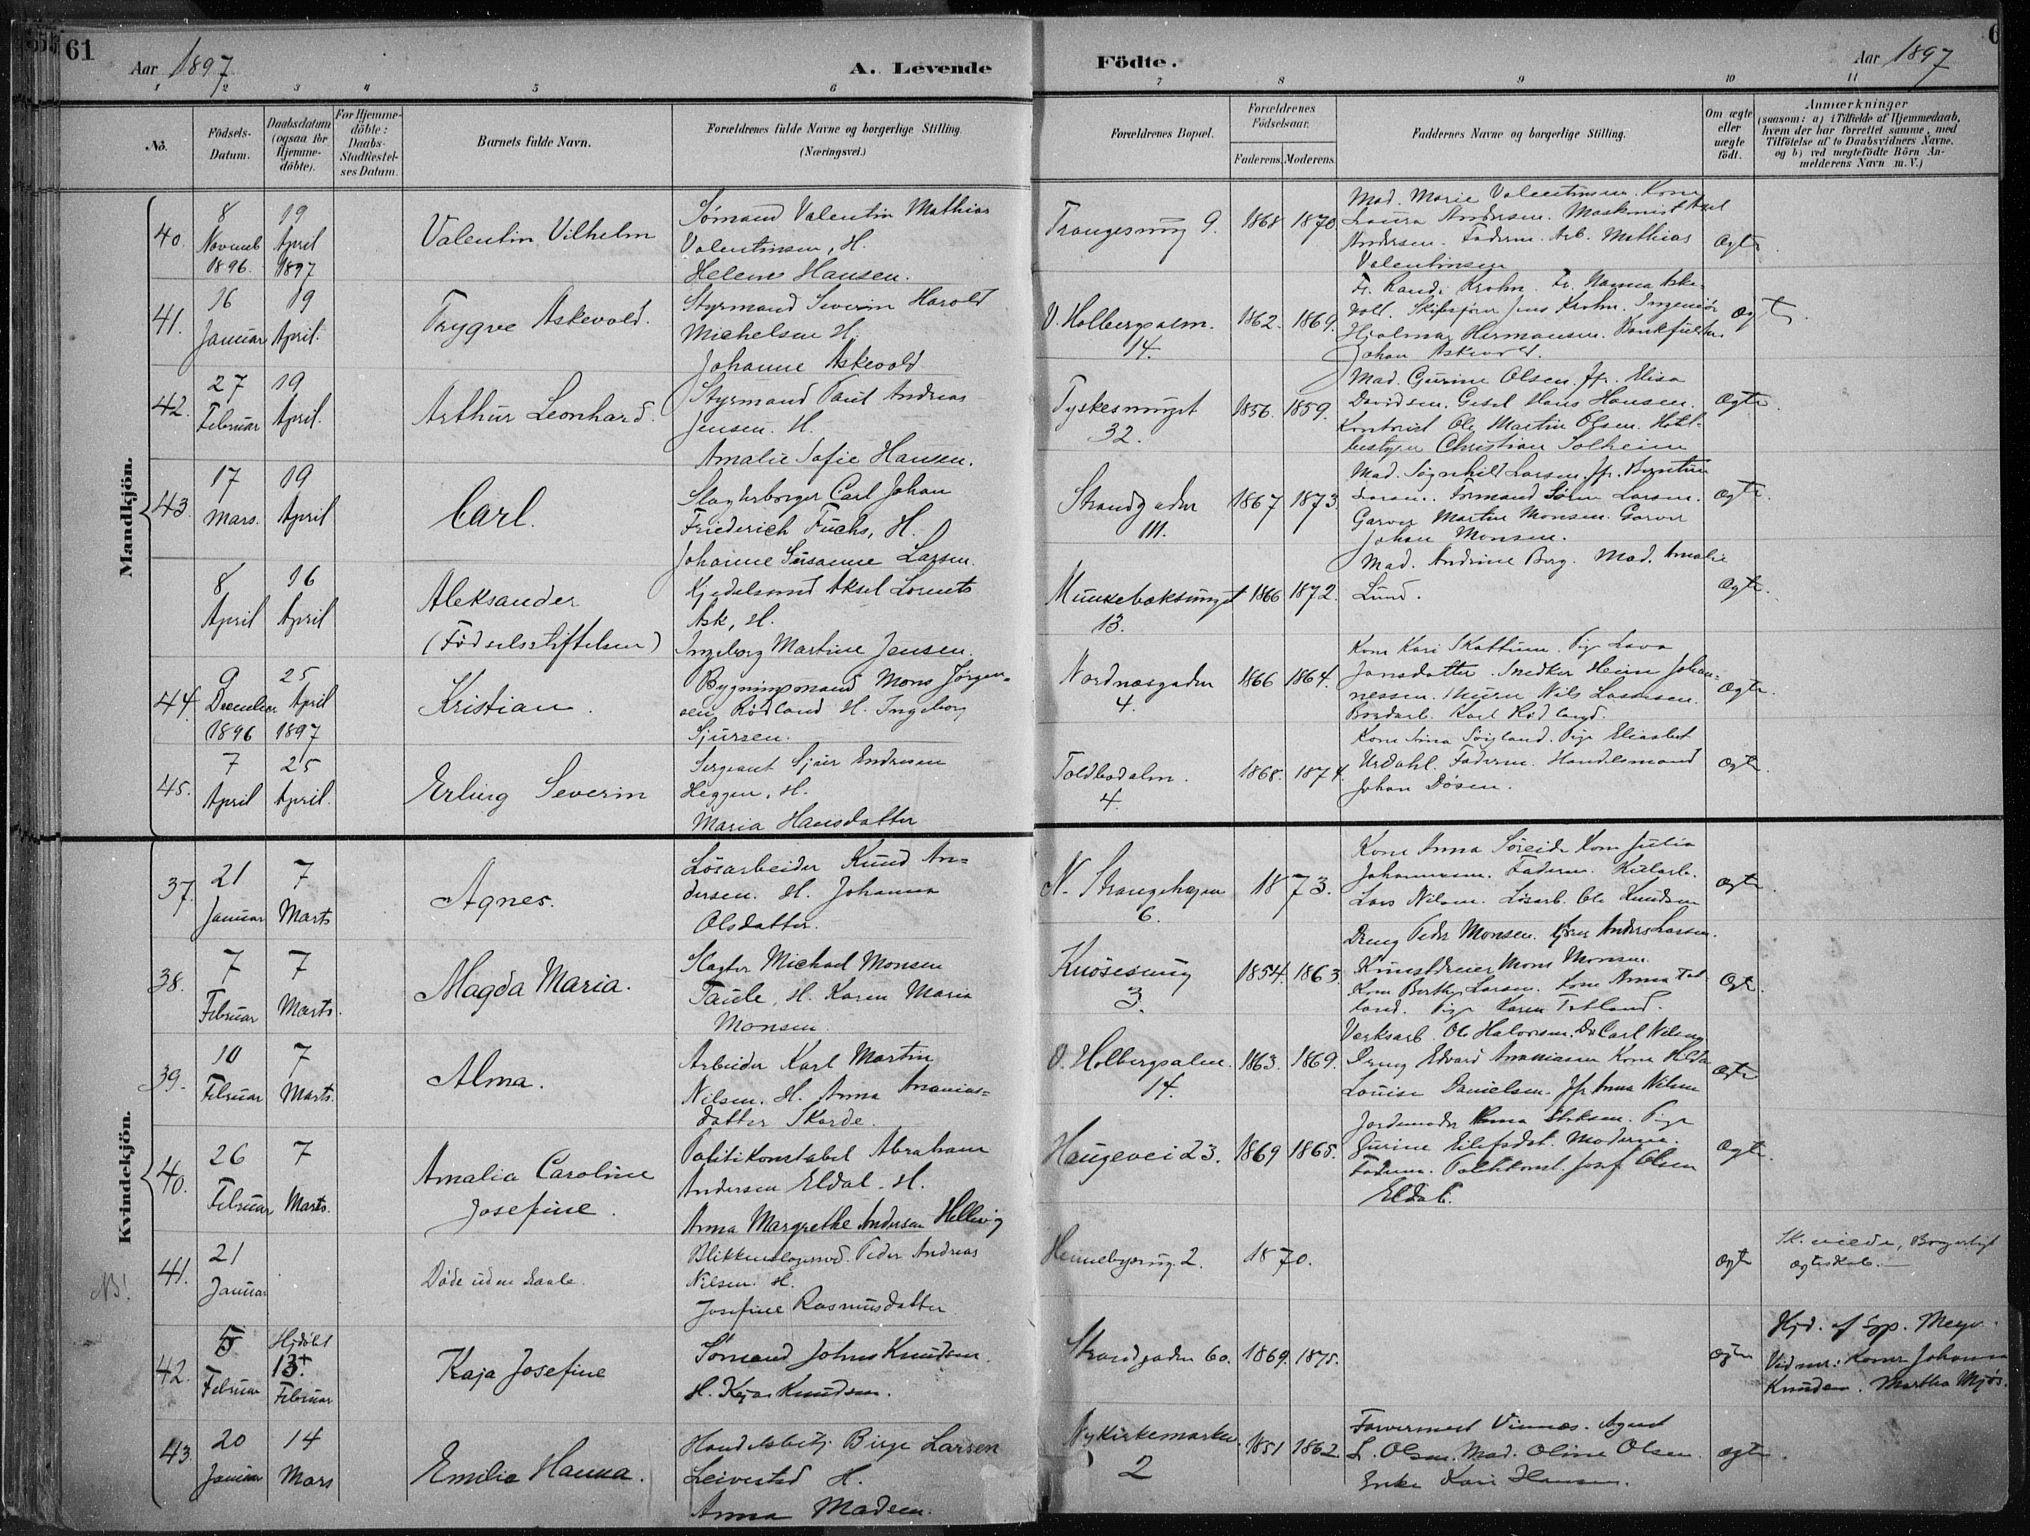 61
Aar 1897
A. Levende
Födte.
Aar 1897
6
1 2 3 4 5 6 7 8 9 10 11
No.
Födsels-
Datum.
Daabsdatum
(ogsaa for
Hjemme-
döbte).
For Hjemme-
döbte:
Daabs-
Stadfæstel-
ses Datum.
Barnets fulde Navn.
Forældrenes fulde Navne og borgerlige Stilling.
(Næringsvei.)
Forældrenes Bopæl.
Forældrenes
Födselsaar.
Faderens. Moderens.
Faddernes Navne og borgerlige Stilling.
Om ægte
eller
uægte
födt.
Anmærkninger
(saasom: a) i Tilfælde af Hjemmedaab,
hvem der har forrettet samme, med
Tilföielse af to Daabsvidners Navne,
og b) ved uægtefödte Börn An-
melderens Navn m. V.)
Mandkjön.
40.
8 Novemb 1896.
19 April 1897
Valentin Vilhelm
Sømand Valentin Mathias
Valentinsen, H.
Helene Hansen.
Trangesmug 9.
1868 1870
Mad. Marie Valentinsen. Kone
Laura Andersen. Maskinist Axel
Andersen. Faderen. Arb. Mathias
Valentinsen
Ægte.
41.
16 Januar
19 April.
Trygve Askevold.
Styrmand Severin Harold
Michelsen H.
Johanne Askevold
V. Holbergsalm.
14.
1862. 1869.
Fr. Randi Krohn. Fr. Nanna Aske-
vold. Skibsfører Jens Krohn. Ingeniør
Hjalmar Hermansen.
Johan Askevold.
Ægt
42.
27 Februar
19 April.
Arthur Leonhard.
Styrmand Paul Andreas
Jensen. H.
Amalie Sofie Hansen.
Tyskesmuget
32.
1856. 1859.
Mad. Gurine Olsen. Jfr. Elisa
Davidsen. Gesel Hans Hansen.
Kontorist Ole Martin Olsen. Hotel-
bestyrer Christian Solheim
Ægte.
43.
17 Mars.
19 April
Carl.
Slagterborger Carl Johan
Friederich Fuchs, H.
Johanne Susanne Larsen.
Strandgaden
111.
1867 1873.
Mad. Søgnhild Larsen. Jfr.
Larsen. Formand Søren Larsen.
Garver Martin Monsen. Garver
Johan Monsen.
Ægte.
8 April
16 April
Aleksander
(Fødselsstiftelsen)
Kjedelsmed Aksel Lorents
Ask, H.
Ingeborg Martine Jensen.
Munkebæksmuget
13.
1866 1872.
Mad. Andrine Berg. Mad. Amalie
Lund.
Ægte.
44.
9 December 1896
25 April 1897
Kristian.
Bygningsmand Mons Jørgen-
sen Rødland H. Ingeborg
Sjursen.
Nordnæsgaden
4.
1866 1864.
Kone Kari Skattum. Pige Lava
Jonsdatter. Snedker Heine Johan-
nessen. Murer Nils Lassesen.
Bordarb. Karl Rødland.
Ægte.
45.
7 April
25 April.
Erling Severin
Sergeant Sjur Endresen
Heggen, H.
Maria Hansdatter
Toldbodalm.
4.
1868. 1874.
Kone Anna Søigland. Pige Eliasbet
Urdahl. Faderen. Handelsmand
Johan Døsen.
Ægte.
Kvindekjön.
37.
21 Januar
7 Marts
Agnes.
Løsarbeider Knud An-
dersen. H. Johanna
Olsdatter.
N. Strangehagen
6.
1873.
Kone Anna Søreide Kone Julia
Johannesen. Faderen. Kularb.
Lars Nilsen. Løsarb. Ole Knudsen
Ægte.
38.
7 Februar
7 Marts.
Magda Maria.
Slagter Michael Monsen
Taule, H. Karen Maria
Monsen.
Knøsesmug
3.
1854. 1863
Dreng Peder Monsen. Anders Larsen.
Kunstdreier Mons Monsen.
Kone Berthe Larsen. Kone Anna Tot-
land. Pige Karen Totland.
Ægte.
39.
10 Februar
7 Marts.
Alma.
Arbeider Karl Martin
Nilsen. H. Anna Ananias-
datter Skorde.
V. Holbergsalm.
14.
1863. 1869.
Værksarb. Ole Halvorsen. Do Carl Nilsen.
Dreng Edvard Ananiasen Kone Hilda
Louise Danielsen. Jfr Anna Nilsen
Ægte
40.
26 Februar
7 Marts.
Amalia Caroline
Josefine.
Politikonstabel Abraham
Andersen Eldal. H.
Anna Margrethe Andersen Hellevig
Haugevei 23.
1869 1865.
Jordemoder Anna Eriksen. Pige
Gurine Eilefsdat. Moderen.
Faderen. Politikonst. Josef Olsen
Eldal.
Ægte.
NB!
41.
21 Januar
Døde uden Daab.
Blikkenslagersvd. Peder Andreas
Nilsen. H.
Josefine Rasmusdatter
Hennebysmug 2.
1870.
Ægte
Borgerligt
Ægteskab.
42.
5 Februar
Hjdøbt
13 Februar
Kaja Josefine
Sømand Johns Knudsen.
H. Kaja Knudsen.
Strandgaden 60.
1869. 1875.
Ægte
Hjd. af Spr. Meyer.
Vidner: Kone Johanna
Knudsen. Martha Mjøs.
43.
20 Januar
14 Mars
Emilie Hanna.
Handelsbetj. Birge Larsen
Leivestad H.
Anna Madsen.
Nykirkemarken.
2
1851 1862.
Farvermest Vinnæs. Agent
L. Olsen. Mad. Oline Olsen.
Enke Kari Hansen.
Ægte.